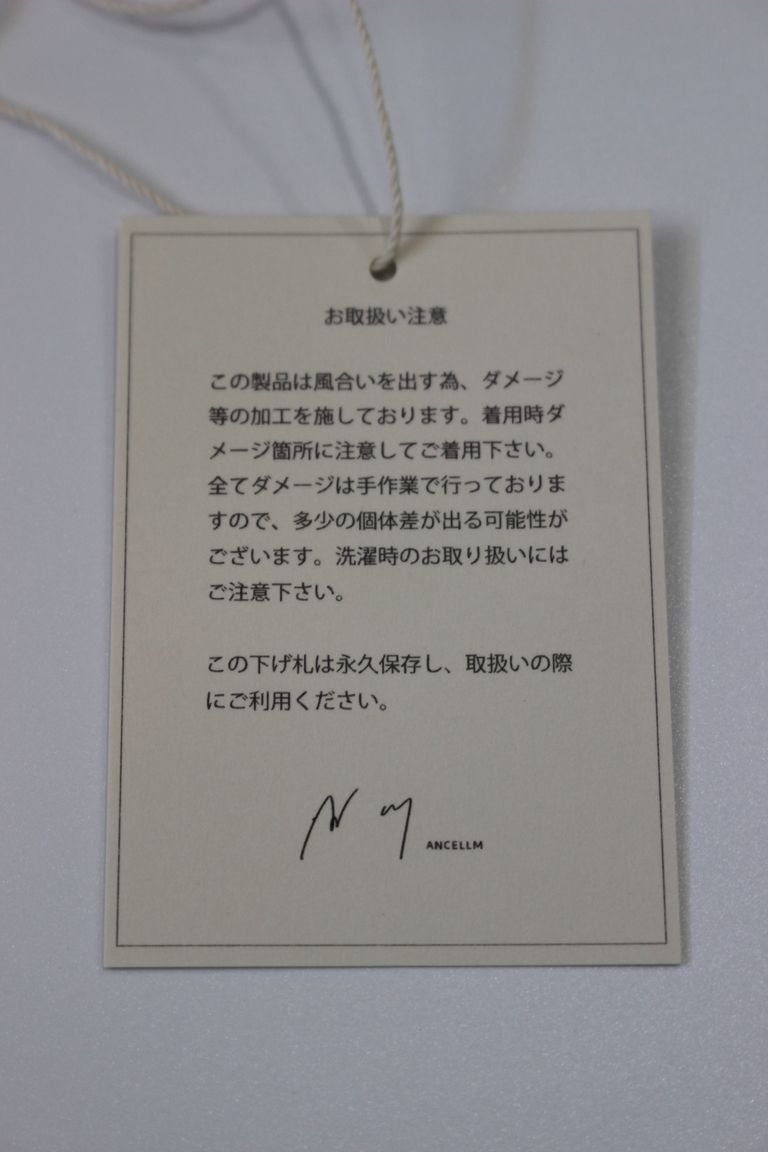 お取扱い注意
この製品は風合いを出す為、ダメージ
等の加工を施しております。着用時ダ
メージ箇所に注意してご着用下さい。
全てダメージは手作業で行っておりま
すので、多少の個体差が出る可能性が
ございます。洗濯時のお取り扱いには
ご注意下さい。
この下げ札は永久保存し、取扱いの際
にご利用ください。
ANCELLM